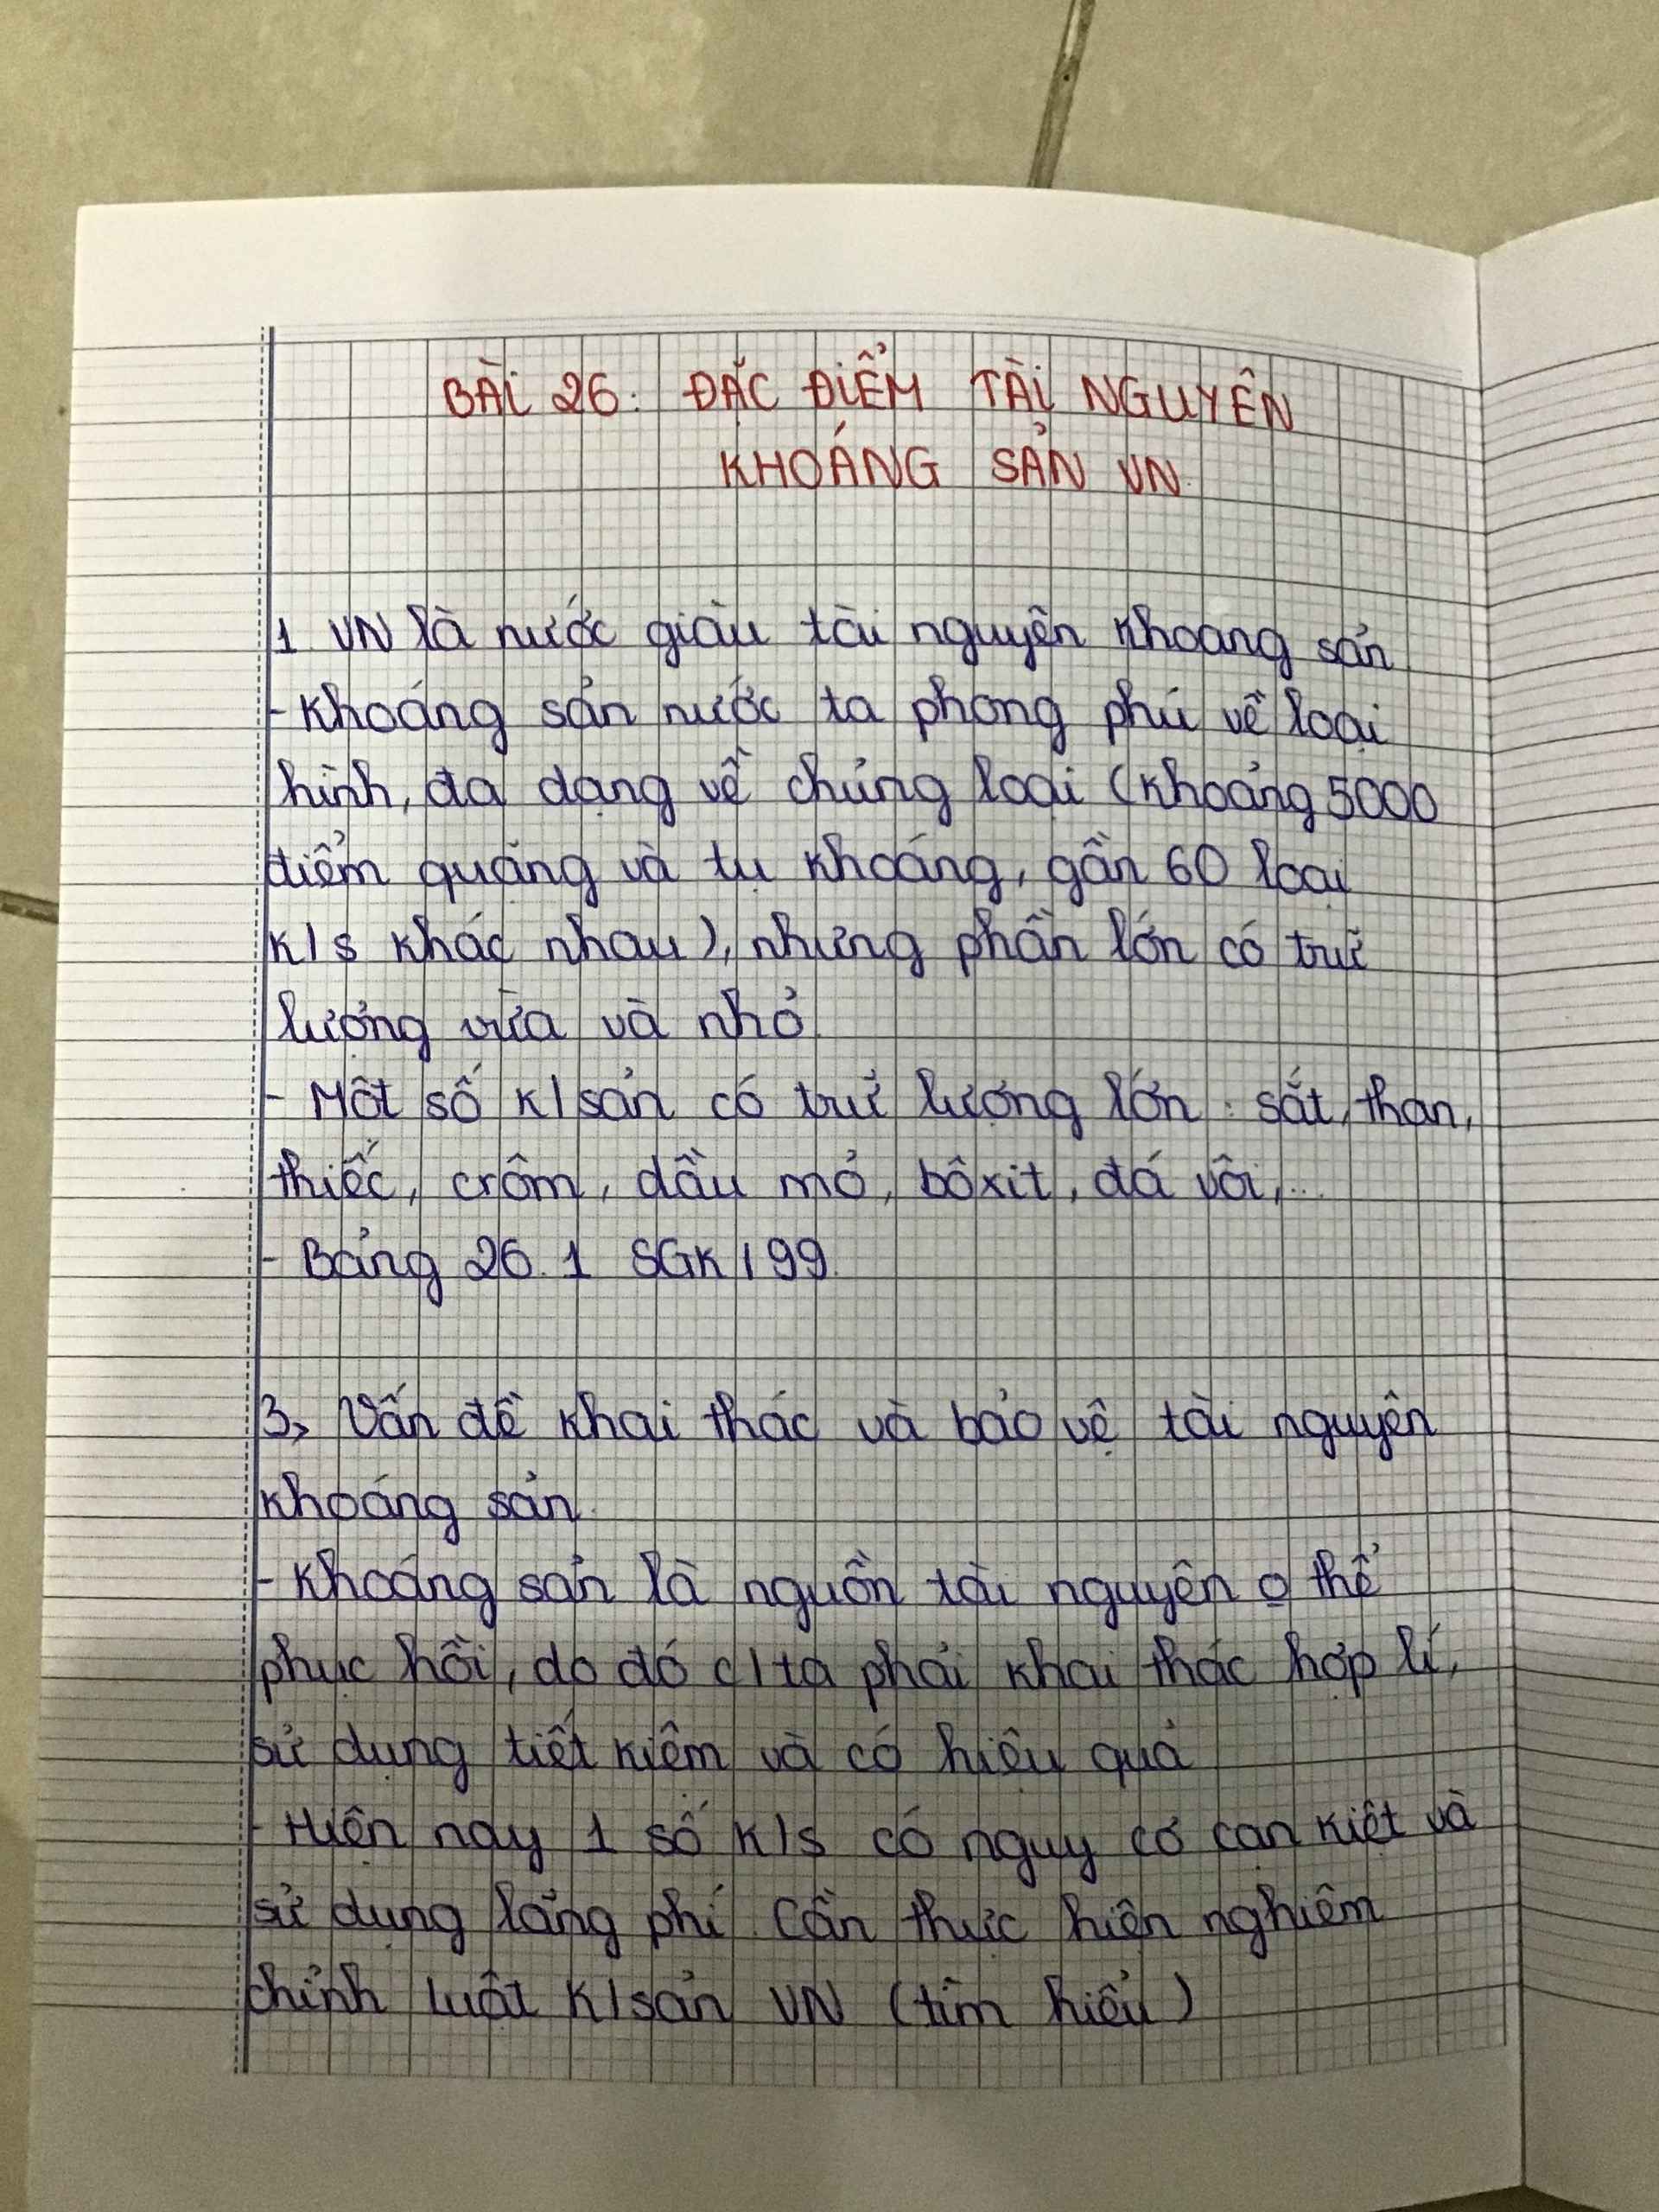 BÀI 26: ĐẶC ĐIỂM TÀI NGUYÊN
KHOÁNG SẢN VN.
1. VN là nước giàu tài nguyên khoáng sản
- Khoáng sản nước ta phong phú về loại
hình, đa dạng về chủng loại (khoảng 5000
điểm quặng và tụ khoáng, gần 60 loại
k/s khác nhau), nhưng phần lớn có trữ
lượng vừa và nhỏ.
- Một số k/sản có trữ lượng lớn: sắt, than,
thiếc, crôm, dầu mỏ, bôxit, đá vôi,...
- Bảng 26.1 SGK/99.
3, Vấn đề khai thác và bảo vệ tài nguyên
khoáng sản.
- Khoáng sản là nguồn tài nguyên o thể
phục hồi, do đó c/ta phải khai thác hợp lí,
sử dụng tiết kiệm và có hiệu quả
- Hiện nay 1 số k/s có nguy cơ cạn kiệt và
sử dụng lãng phí. Cần thực hiện nghiêm
chỉnh Luật K/sản VN (tìm hiểu)